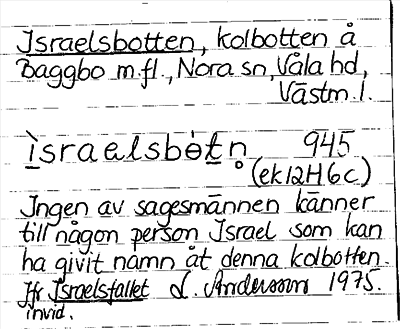 Israelsbotten, kolbotten å
Baggbo m.fl., Nora sn, Våla hd,
Västm. l.
ìsraelsbòtn̥ 945
(ek12H6c)
Ingen av sagesmännen känner
till någon person Israel som kan
ha givit namn åt denna kolbotten.
Jfr Israelsfallet L. Andersson 1975.
invid.